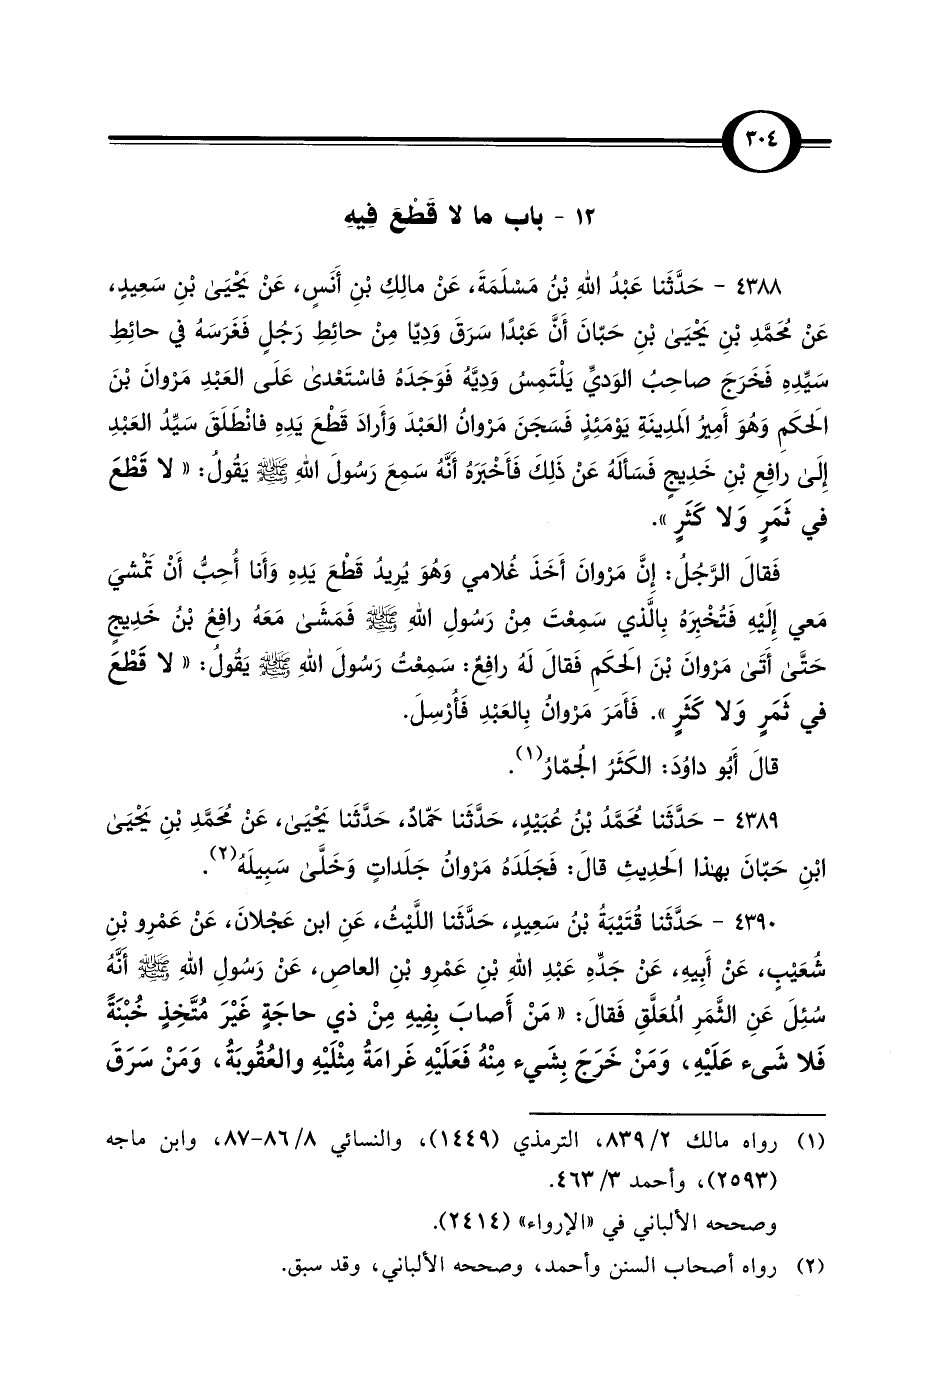 ٣٠٤
١٢ - باب ما لا قَطْعَ فِيهِ
٤٣٨٨ - حَدَّثَنا عَبْدُ اللهِ بْنُ مَسْلَمَةَ، عَنْ مالِكِ بْنِ أَنَسٍ، عَنْ يَحْيَىٰ بْنِ سَعِيدٍ،
عَنْ مُحَمَّدِ بْنِ يَحْيَىٰ بْنِ حَبّانَ أَنَّ عَبْدًا سَرَقَ وَدِيّا مِنْ حائِطِ رَجُلٍ فَغَرَسَهُ في حائِطِ
سَيِّدِهِ فَخَرَجَ صاحِبُ الوَديِّ يَلْتَمِسُ وَدِيَّهُ فَوَجَدَهُ فاسْتَعْدىٰ عَلَى العَبْدِ مَرْوانَ بْنَ
الحَكَمِ وَهُوَ أَمِيرُ المَدِينَةِ يَوْمَئِذٍ فَسَجَنَ مَرْوانُ العَبْدَ وَأَرادَ قَطْعَ يَدِهِ فانْطَلَقَ سَيِّدُ العَبْدِ
إِلَىٰ رافِعِ بْنِ خَدِيجٍ فَسَأَلَهُ عَنْ ذَلِكَ فَأَخْبَرَهُ أَنَّهُ سَمِعَ رَسُولَ اللهِ ﷺ يَقُولُ: « لا قَطْعَ
في ثَمَرٍ وَلا كَثَرٍ ».
فَقالَ الرَّجُلُ: إِنَّ مَرْوانَ أَخَذَ غُلامي وَهُوَ يُرِيدُ قَطْعَ يَدِهِ وَأَنا أُحِبُّ أَنْ تَمْشيَ
مَعي إِلَيْهِ فَتُخْبِرَهُ بِالَّذي سَمِعْتَ مِنْ رَسُولِ اللهِ ﷺ فَمَشَىٰ مَعَهُ رافِعُ بْنُ خَدِيجٍ
حَتَّىٰ أَتَىٰ مَرْوانَ بْنَ الحَكَمِ فَقالَ لَهُ رافِعٌ: سَمِعْتُ رَسُولَ اللهِ ﷺ يَقُولُ: « لا قَطْعَ
في ثَمَرٍ وَلا كَثَرٍ ». فَأَمَرَ مَرْوانُ بِالعَبْدِ فَأُرْسِلَ.
قالَ أَبُو داوُدَ: الكَثَرُ الجُمّارُ(١).
٤٣٨٩ - حَدَّثَنا مُحَمَّدُ بْنُ عُبَيْدٍ، حَدَّثَنا حَمّادٌ، حَدَّثَنا يَحْيَىٰ، عَنْ مُحَمَّدِ بْنِ يَحْيَىٰ
ابْنِ حَبّانَ بهذا الحَدِيثِ قالَ: فَجَلَدَهُ مَرْوانُ جَلَداتٍ وَخَلَّىٰ سَبِيلَهُ(٢).
٤٣٩٠ - حَدَّثَنا قُتَيْبَةُ بْنُ سَعِيدٍ، حَدَّثَنا اللَّيْثُ، عَنِ ابن عَجْلانَ، عَنْ عَمْرِو بْنِ
شُعَيْبٍ، عَنْ أَبِيهِ، عَنْ جَدِّهِ عَبْدِ اللهِ بْنِ عَمْرِو بْنِ العاصِ، عَنْ رَسُولِ اللهِ ﷺ أَنَّهُ
سُئِلَ عَنِ الثَّمَرِ المُعَلَّقِ فَقالَ: « مَنْ أَصابَ بِفِيهِ مِنْ ذي حاجَةٍ غَيْرَ مُتَّخِذٍ خُبْنَةً
فَلا شَىء عَلَيْهِ، وَمَنْ خَرَجَ بِشَيء مِنْهُ فَعَلَيْهِ غَرامَةُ مِثْلَيْهِ والعُقُوبَةُ، وَمَنْ سَرَقَ
(١) رواه مالك ٢/ ٨٣٩، الترمذي (١٤٤٩)، والنسائي ٨/ ٨٦-٨٧، وابن ماجه
(٢٥٩٣)، وأحمد ٣/ ٤٦٣.
وصححه الألباني في «الإرواء» (٢٤١٤).
(٢) رواه أصحاب السنن وأحمد، وصححه الألباني، وقد سبق.